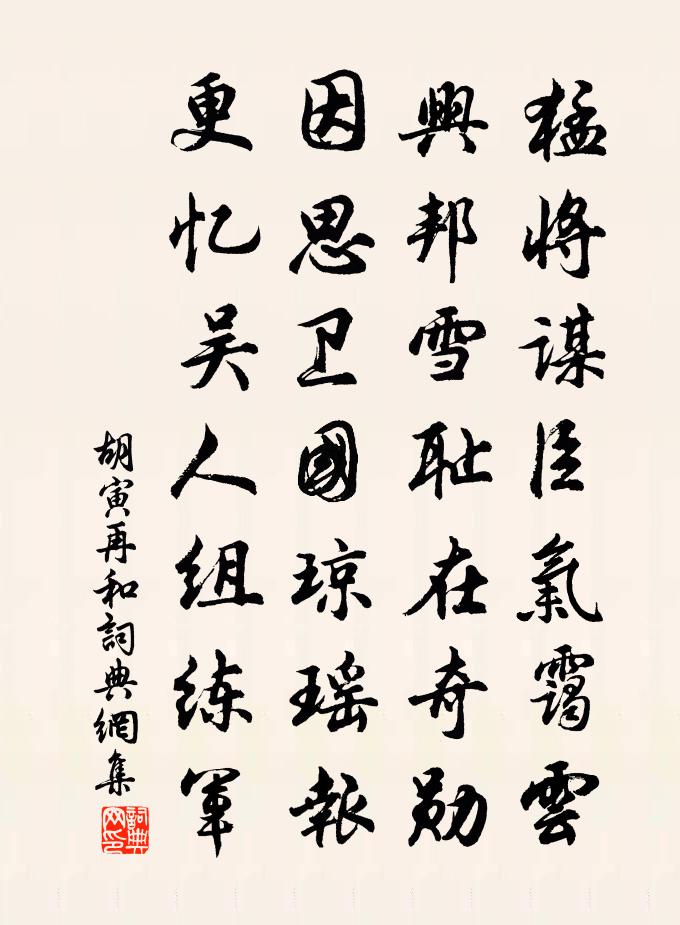 猛将谋臣氣靄雲
興邦雪耻在奇勋
因思卫國琼瑶報
更忆吴人组练军
胡寅再和詞典網集
詞典网印